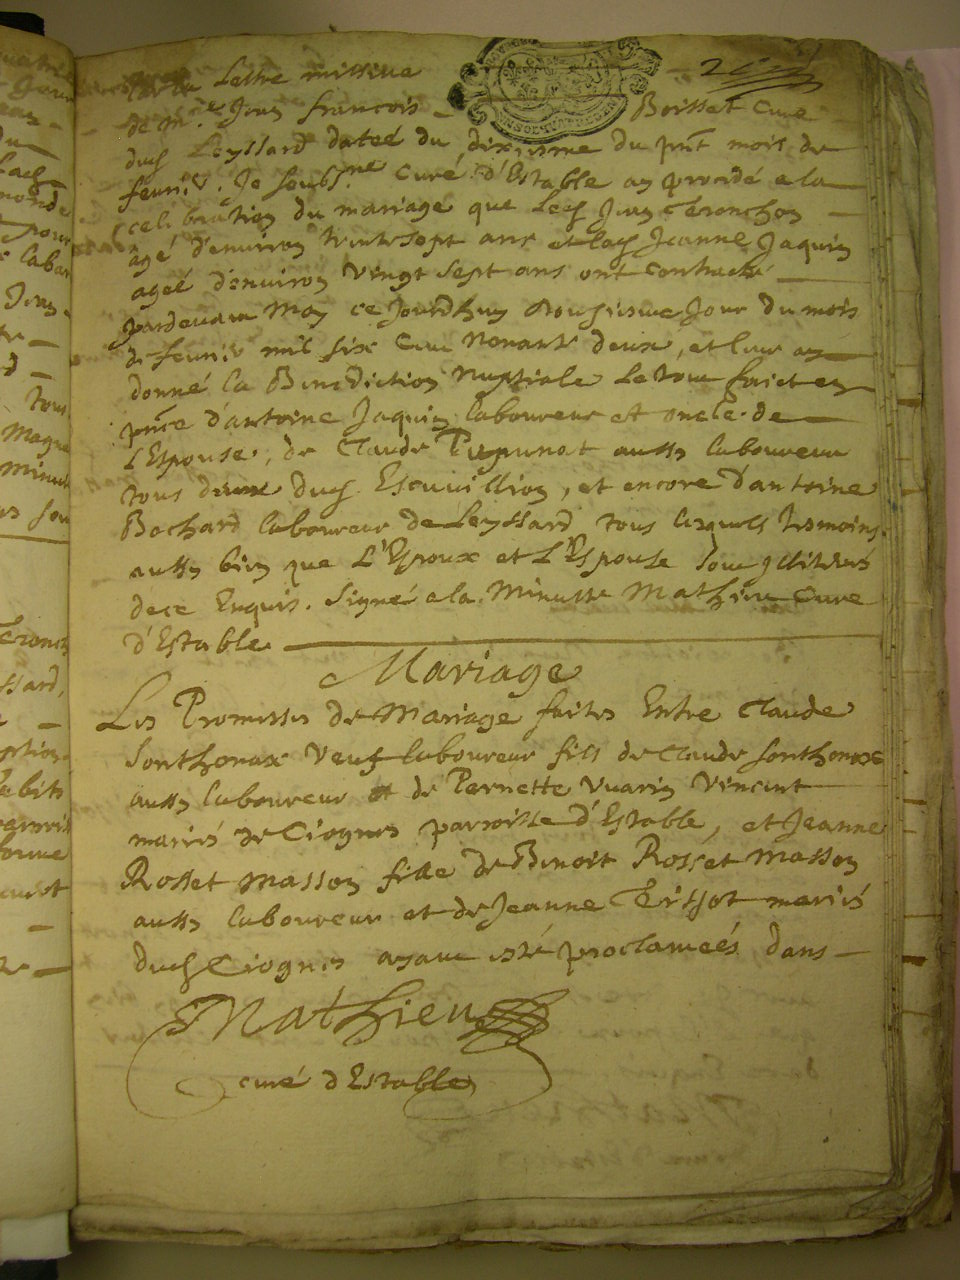 Lettre missive
de Mre Jean francois Boisset Curé
dud Leyssard dateé du dixiesme du pnt mois de
fevrier. Je soubsne curé d'Estable ay procedé a la
celebration du mariage que led Jean Tronchon
agé d'environ trente sept ans et lad Jeanne Jaquin
ageé d'environ vingt sept ans ont contracté
pardevant Moy ce Jourdhuy douziesme Jour du mois
de fevrier mil six Cent Nonante deux, et leur ay
donné la Benediction Nuptiale Le tout faict en
pnce d'antoine Jaquin laboureur et oncle de
L'Espouse, de Claude aussy laboureur
tous deux dud Escuvillion, et encore d'antoine
Bochard laboureur de Leyssard, tous lesquels tesmoins
aussy bien que L'Espoux et L'Espouse sont jllitteres
de ce Enquis. Signé a la Minutte Mathieu Curé
d'Estable
Mariage
Les Promesses de Mariage faites Entre Claude
Sonthonax veuf laboureur fils de Claude Sonthonax
aussy laboureur et de Pernette Vuarin Vincent
mariés de Ciognes parroisse d'Estable, et Jeanne
Rosset Masson fille de Benoit Rosset Masson
aussy laboureur et de Jeanne Tissot mariés
dud Ciognes ayant esté proclameés dans
Mathieu
curé d'Estable